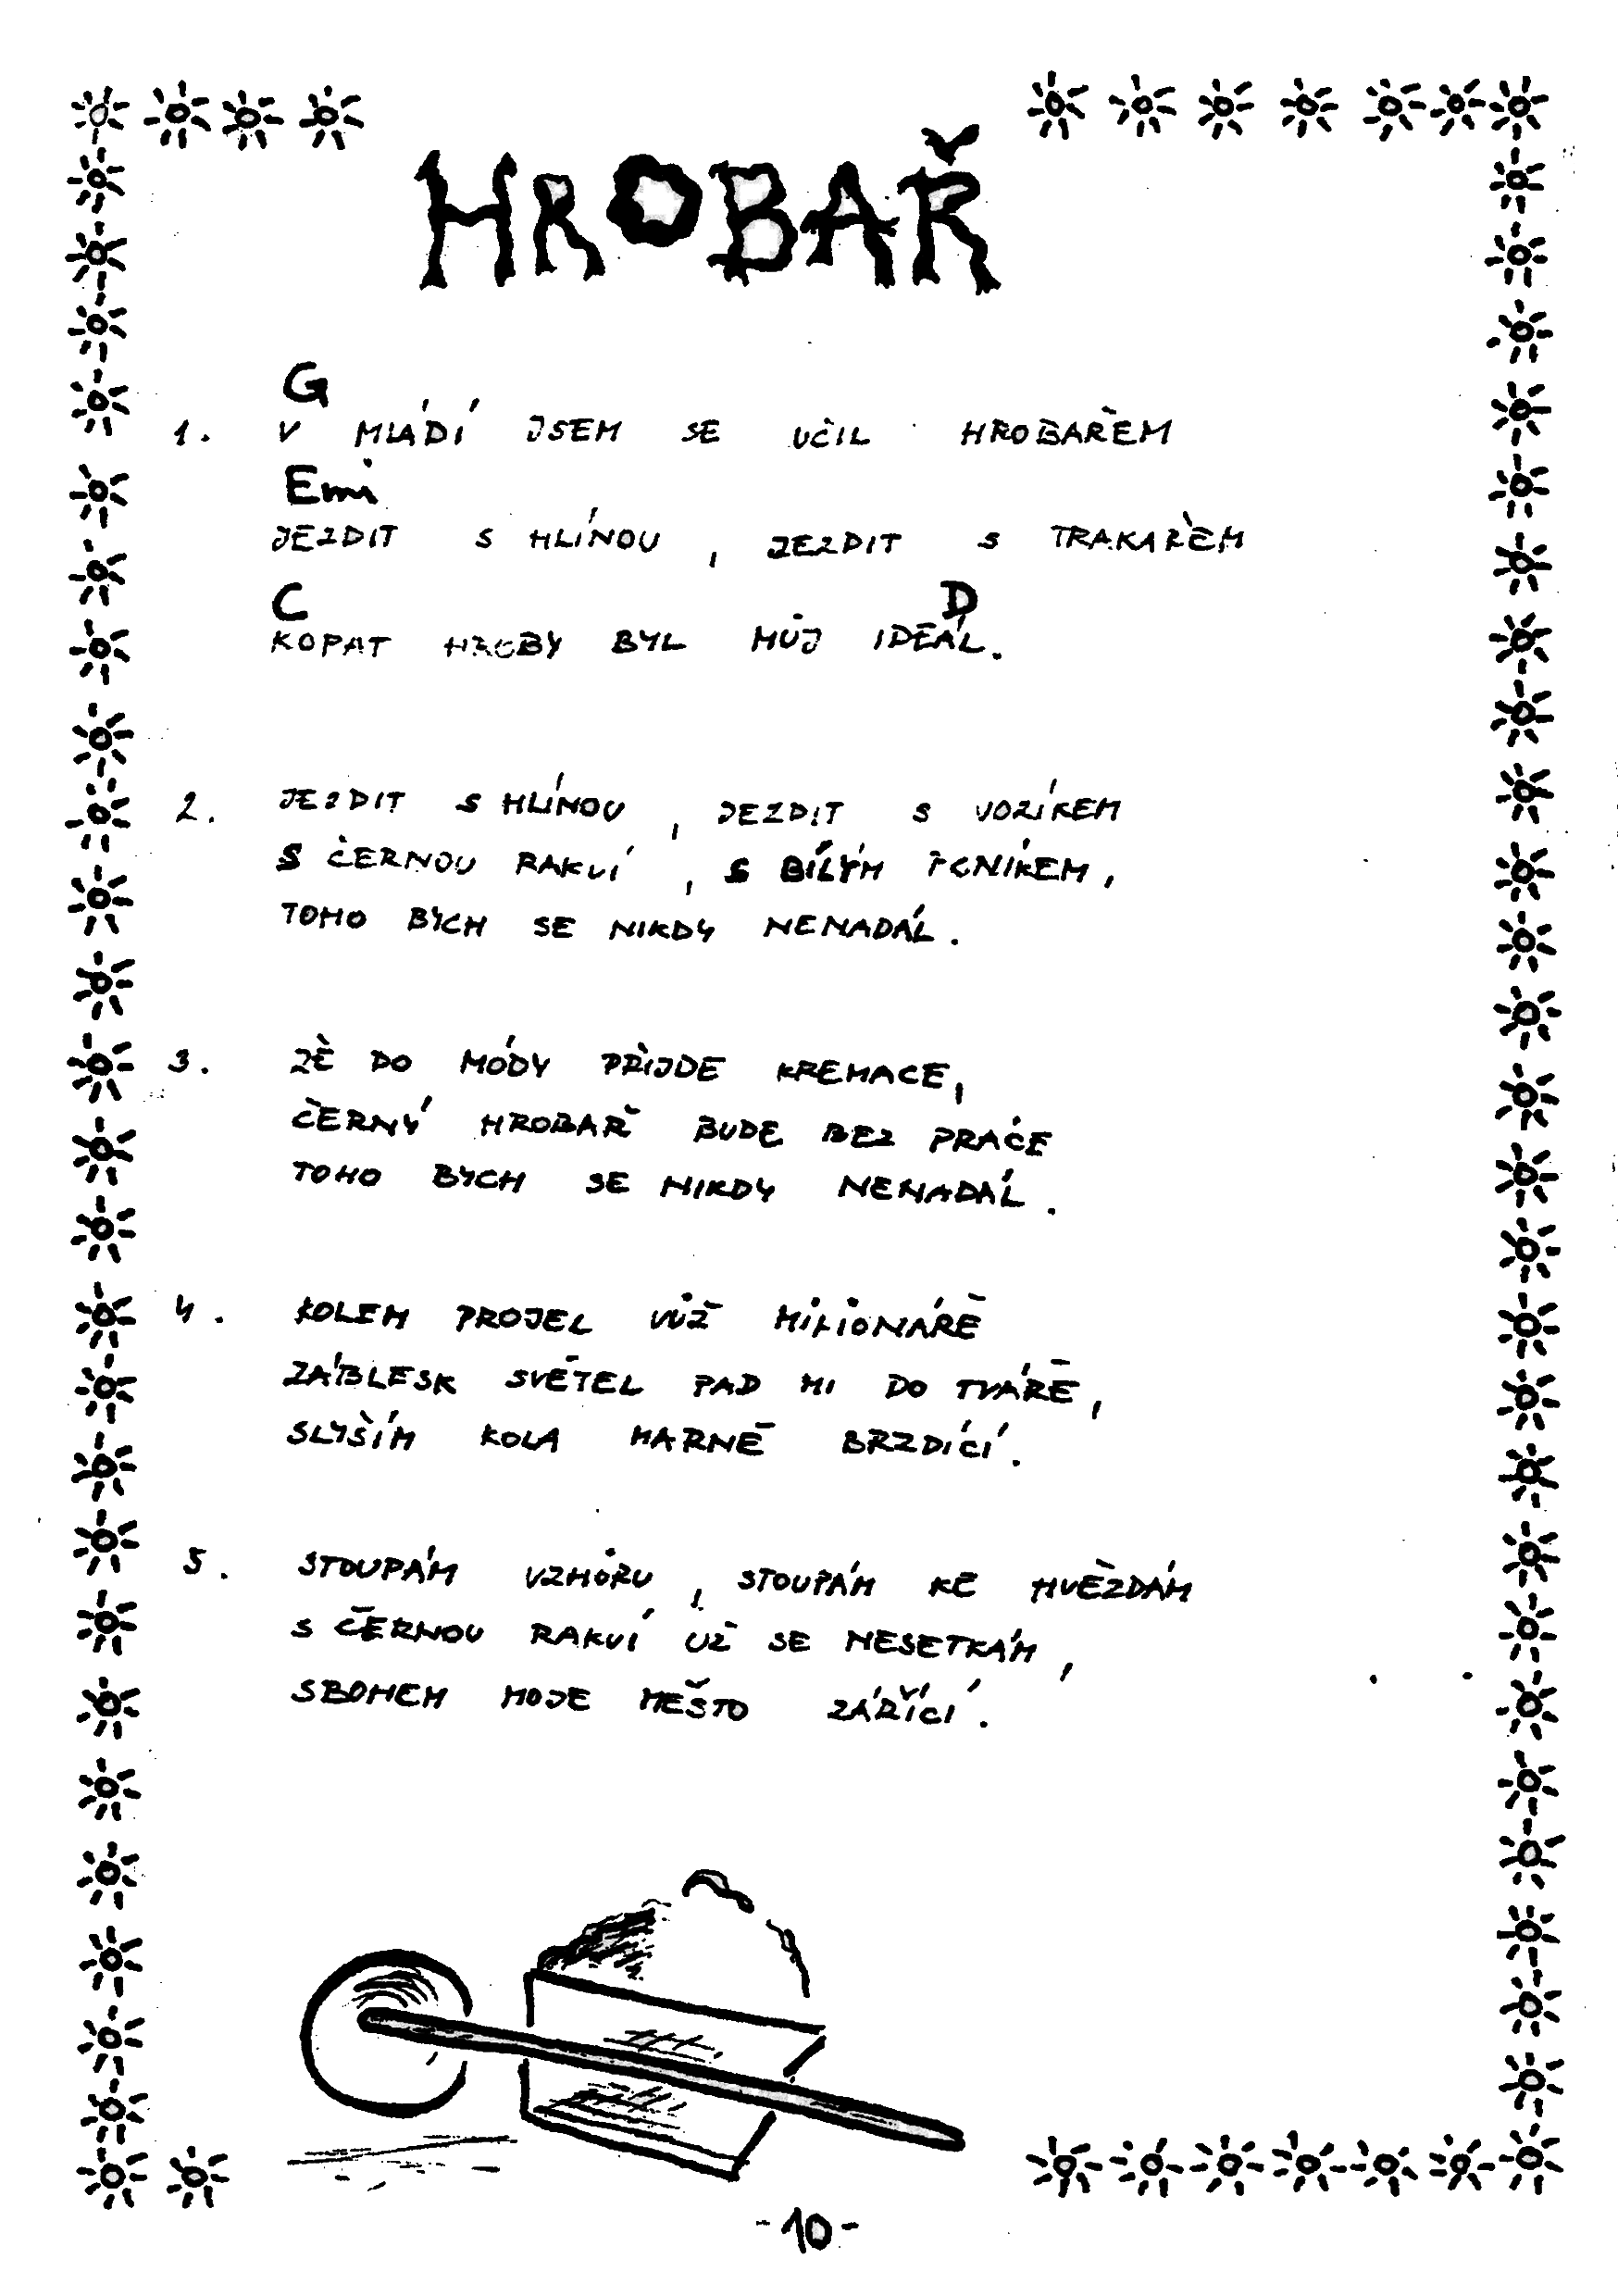 HROBAŘ
G
1. V MLÁDÍ JSEM SE UČIL HROBAŘEM
Emi
JEZDIT S HLÍNOU, JEZDIT S TRAKAŘEM
C D
KOPAT HROBY BYL MŮJ IDEÁL.
2. JEZDIT S HLÍNOU, JEZDIT S VOZÍKEM
S ČERNOU RAKVÍ, S BÍLÝM POMNÍKEM,
TOHO BYCH SE NIKDY NENADÁL.
3. ŽE DO MÓDY PŘIJDE KREMACE,
ČERNÝ HROBAŘ BUDE BEZ PRÁCE
TOHO BYCH SE NIKDY NENADÁL.
4. KOLEM PROJEL VŮZ MILIONÁŘE
ZÁBLESK SVĚTEL PAD MI DO TVÁŘE,
SLYŠÍM KOLA MARNĚ BRZDÍCÍ.
5. STOUPÁM VZHŮRU, STOUPÁM KE HVĚZDÁM
S ČERNOU RAKVÍ UŽ SE NESETKÁM,
SBOHEM MOJE MĚSTO ZÁŘÍCÍ.
-10-